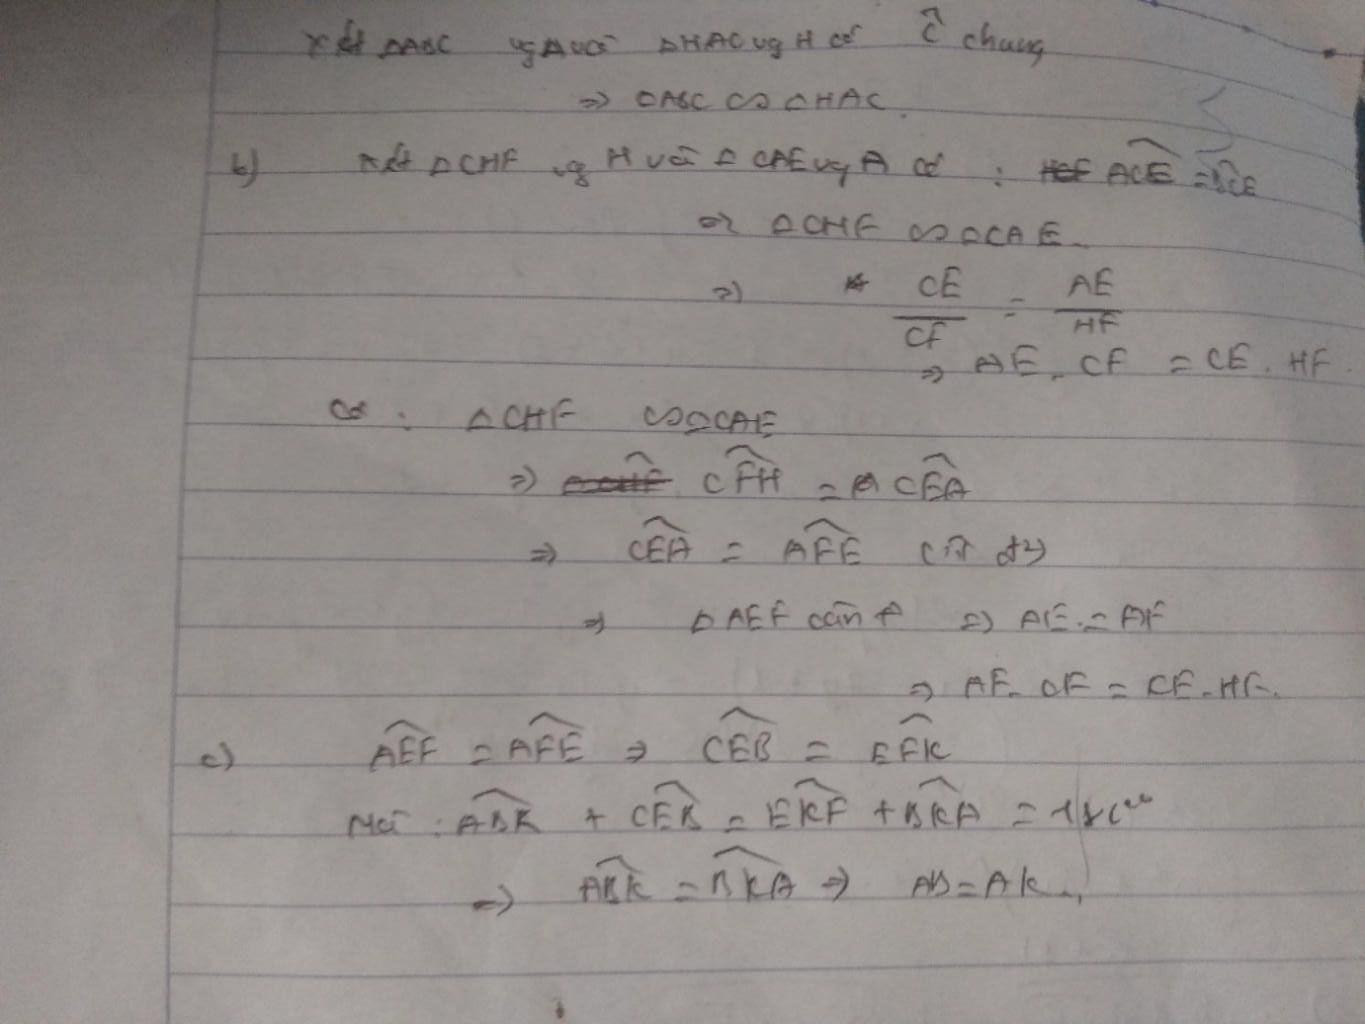 xét ΔABC vg A với ΔHAC vg H có Ĉ chung
=> ΔABC ∽ ΔHAC
b) xét ΔCHF vg H với ΔCAE vg A có : ACE =
=> ΔCHF ∽ ΔCAE
=> CE/CF = AE/HF
=> AE. CF = CE. HF.
Có : ΔCHF ∽ ΔCAE
=> CFH = CEA
=> CEA = AFE (đđ)
=> ΔAEF cân A => AE = AF
=> AF. CF = CE. HF.
c) AEF = AFE => CEB = EFK
Mà : ABK + CEB = EKF + BKA = 180°
=> ABK = BKA => AB = AK.